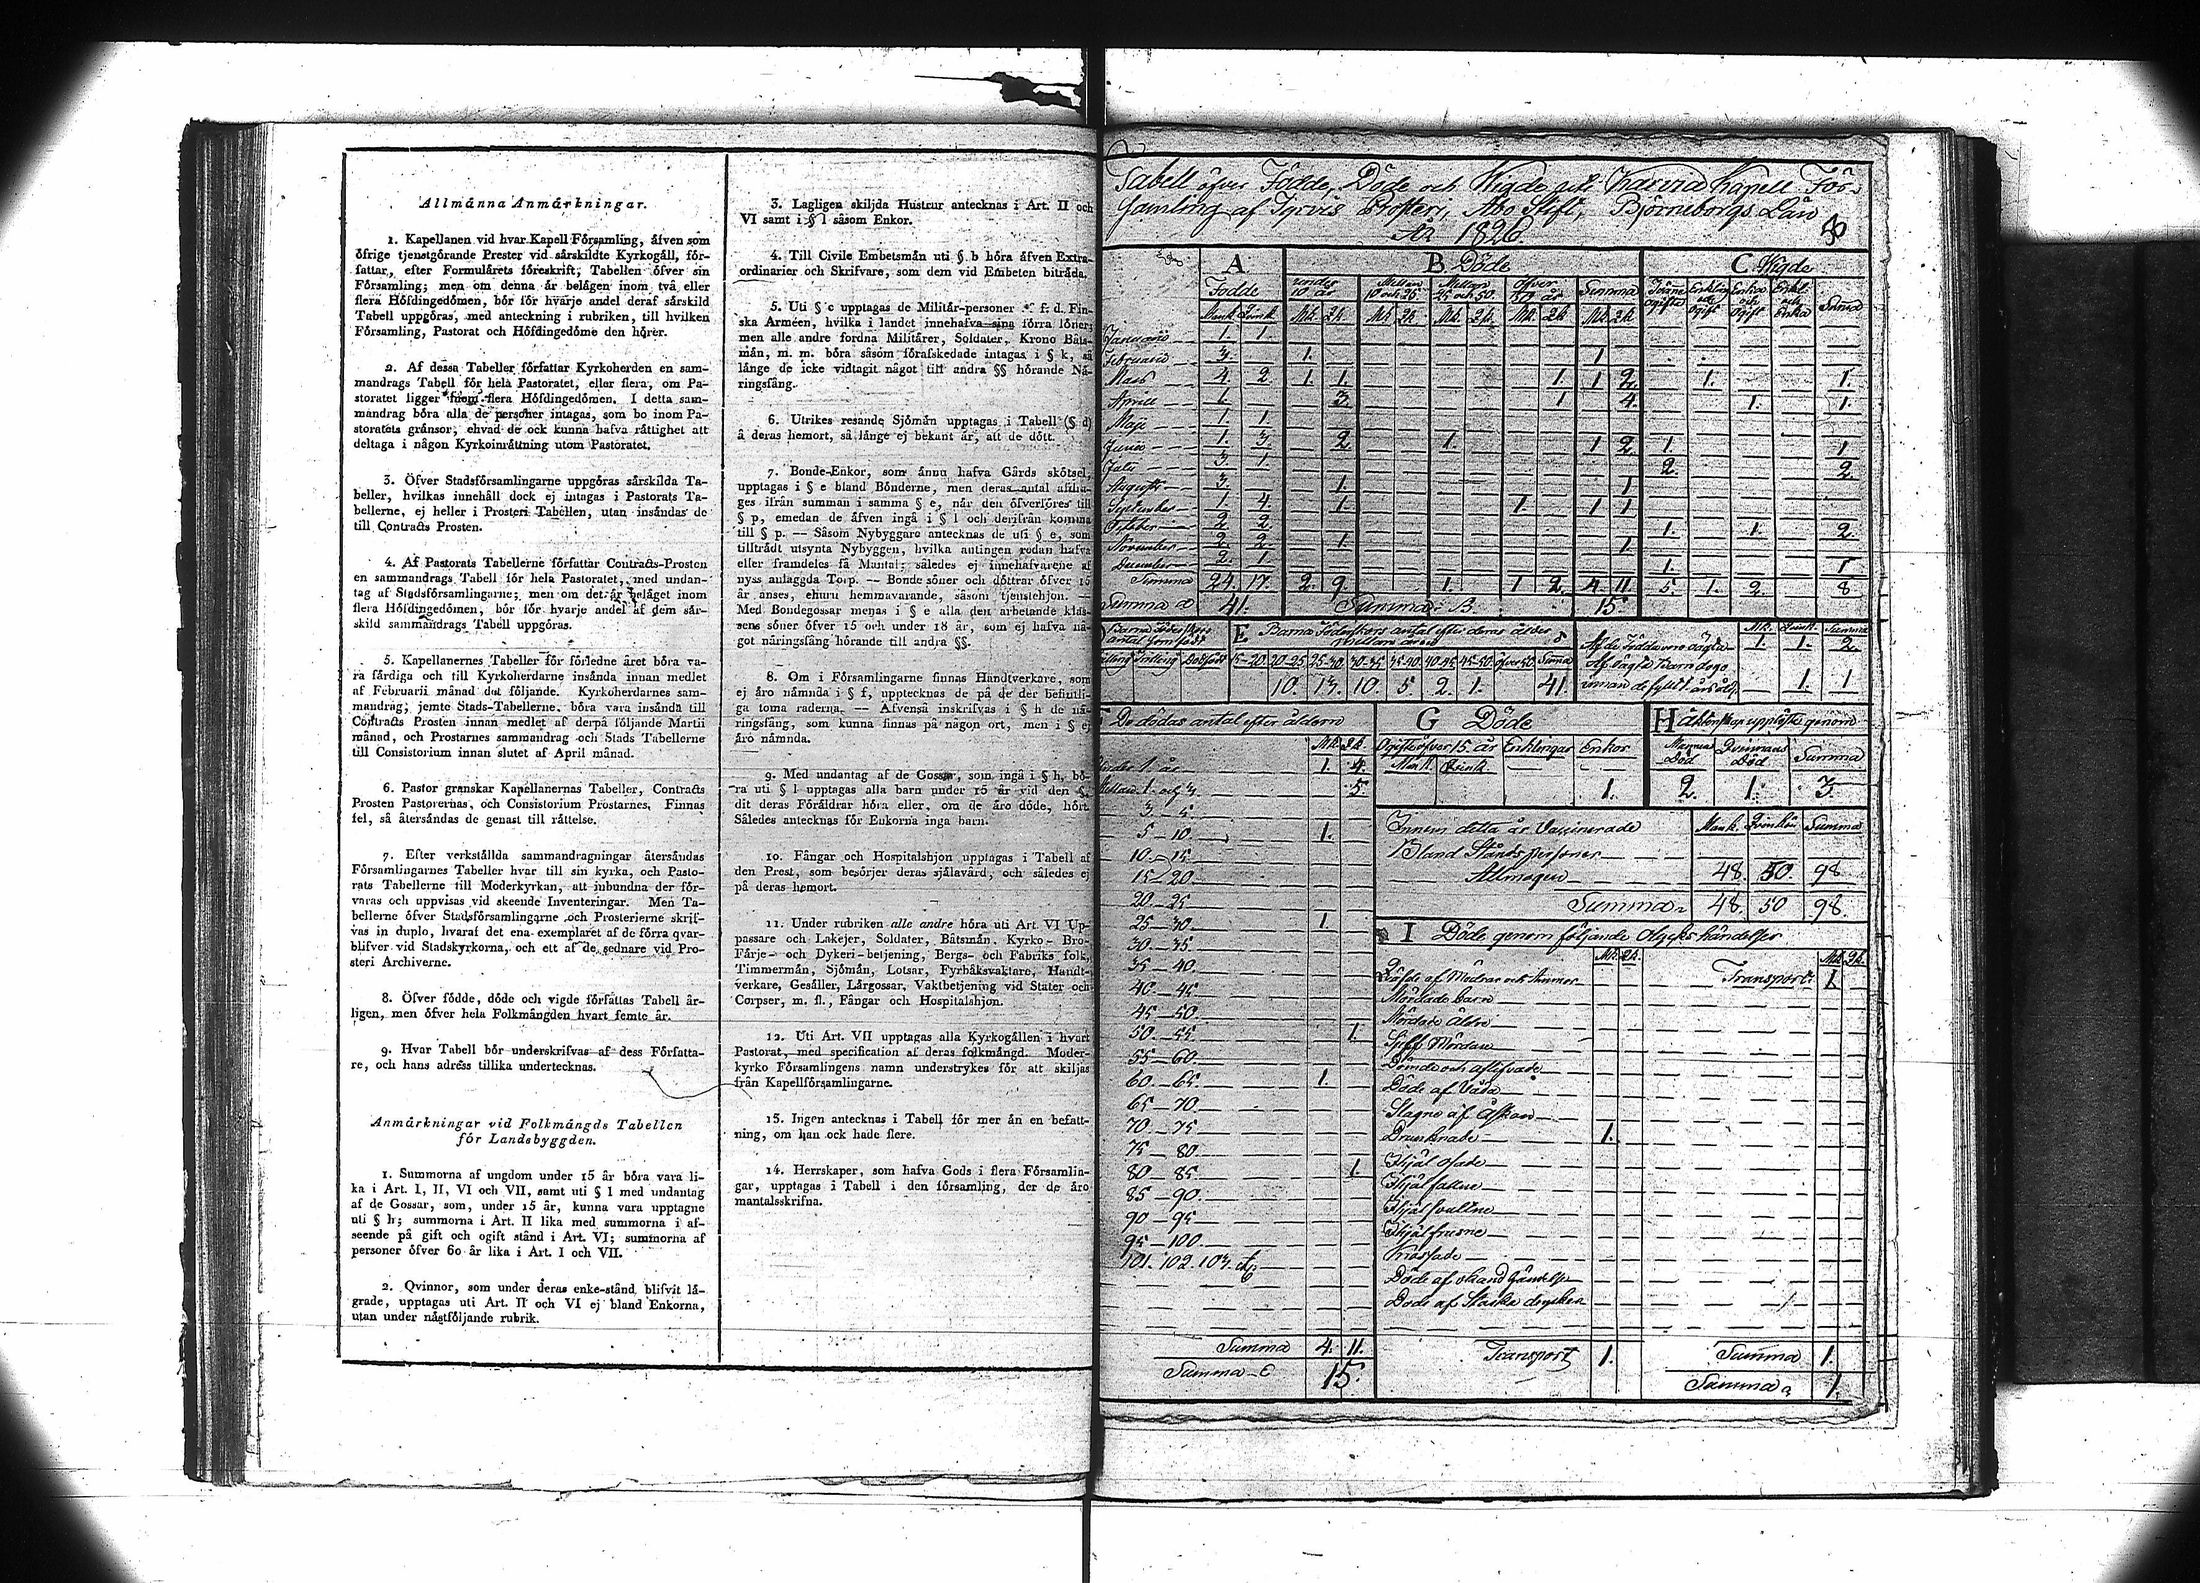 Allmänna Anmärkningar.
1. Kapellanen vid hvar Kapell Församling, äfven som
öfrige tjenstgörande Prester vid särskildte Kyrkogäll, för-
fattar, efter Formulärets föreskrift, Tabellen öfver sin
Församling; men om denna är belägen inom två eller
flera Höfdingedömen, bör för hvarje andel deraf särskild
Tabell uppgöras, med anteckning i rubriken, till hvilken
Församling, Pastorat och Höfdingedöme den hörer.
2. Af dessa Tabeller författar Kyrkoherden en sam-
mandrags Tabell för hela Pastoratet, eller flera, om Pa-
storatet ligger inom flera Höfdingedömen. I detta sam-
mandrag böra alla de personer intagas, som bo inom Pa-
storatets gränsor, ehvad de ock kunna hafva rättighet att
deltaga i någon Kyrkoinrättning utom Pastoratet.
3. Öfver Stadsförsamlingarne uppgöras särskilda Ta-
beller, hvilkas innehåll dock ej intagas i Pastorats Ta-
bellerne, ej heller i Prosteri Tabellen, utan insändas de
till Contracts Prosten.
4. Af Pastorats Tabellerne författar Contracts-Prosten
en sammandrags Tabell för hela Pastoratet, med undan-
tag af Stadsförsamlingarne; men om det är beläget inom
flera Höfdingedömen, bör för hvarje andel af dem sär-
skild sammandrags Tabell uppgöras.
5. Kapellanernes Tabeller för förledne året böra va-
ra färdiga och till Kyrkoherdarne insända innan medlet
af Februarii månad det följande. Kyrkoherdarnes sam-
mandrag, jemte Stads-Tabellerne, böra vara insända till
Contracts Prosten innan medlet af derpå följande Martii
månad, och Prostarnes sammandrag och Stads Tabellerne
till Consistorium innan slutet af April månad.
6. Pastor granskar Kapellanernas Tabeller, Contracts
Prosten Pastorernas, och Consistorium Prostarnes. Finnas
fel, så återsändas de genast till rättelse.
7. Efter verkställda sammandragningar återsändas
Församlingarnes Tabeller hvar till sin kyrka, och Pasto-
rats Tabellerne till Moderkyrkan, att inbundna der för-
varas och uppvisas vid skeende Inventeringar. Men Ta-
bellerne öfver Stadsförsamlingarne och Prosterierne skrif-
vas in duplo, hvaraf det ena exemplaret af de förra qvar-
blifver vid Stadskyrkorna, och ett af de sednare vid Pro-
steri Archiverne.
8. Öfver födde, döde och vigde författas Tabell år-
ligen, men öfver hela Folkmängden hvart femte år.
9. Hvar Tabell bör underskrifvas af dess Författa-
re, och hans adress tillika undertecknas.
Anmärkningar vid Folkmängds Tabellen
för Landsbyggden.
1. Summorna af ungdom under 15 år böra vara li-
ka i Art. I, II, VI och VII, samt uti § l med undantag
af de Gossar, som, under 15 år, kunna vara upptagne
uti § h; summorna i Art. II lika med summorna i af-
seende på gift och ogift stånd i Art. VI; summorna af
personer öfver 60 år lika i Art. I och VII.
2. Qvinnor, som under deras enke-stånd blifvit lä-
grade, upptagas uti Art. II och VI ej bland Enkorna,
utan under nästföljande rubrik.
3. Lagligen skiljda Hustrur antecknas i Art. II och
VI samt i § l såsom Enkor.
4. Till Civile Embetsmän uti § b höra äfven Extra-
ordinarier och Skrifvare, som dem vid Embeten biträda.
5. Uti § c upptagas de Militär-personer af f. d. Fin-
ska Arméen, hvilka i landet innehafva sina förra löner;
men alle andre fordna Militärer, Soldater, Krono Båts-
män, m. m. böra såsom förafskedade intagas i § k, så
länge de icke vidtagit något till andra §§ hörande Nä-
ringsfång.
6. Utrikes resande Sjömän upptagas i Tabell (§ d)
å deras hemort, så länge ej bekant är, att de dött.
7. Bonde-Enkor, som ännu hafva Gårds skötsel,
upptagas i § e bland Bönderne, men deras antal afdra-
ges ifrån summan i samma § e, när den öfverföres till
§ p, emedan de äfven ingå i § l och derifrån komma
till § p. — Såsom Nybyggare antecknas de uti § e, som
tillträdt utsynta Nybyggen, hvilka antingen redan hafva
eller framdeles få Mantal; således ej innehafvarene af
nyss anlaggda Torp. — Bonde söner och döttrar öfver 15
år anses, ehuru hemmavarande, såsom tjenstehjon. —
Med Bondegossar menas i § e alla den arbetande klas-
sens söner öfver 15 och under 18 år, som ej hafva nå-
got näringsfång hörande till andra §§.
8. Om i Församlingarne finnas Handtverkare, som
ej äro nämnda i § f, upptecknas de på de der befintli-
ga toma raderna. — Äfvenså inskrifvas i § h de nä-
ringsfång, som kunna finnas på någon ort, men i § ej
äro nämnda.
9. Med undantag af de Gossar, som ingå i § h, bö-
ra uti § l upptagas alla barn under 15 år vid den §,
dit deras Föräldrar höra eller, om de äro döde, hört.
Således antecknas för Enkorna inga barn.
10. Fångar och Hospitalshjon upptagas i Tabell af
den Prest, som besörjer deras själavård, och således ej
på deras hemort.
11. Under rubriken alle andre höra uti Art. VI Up-
passare och Lakejer, Soldater, Båtsmän, Kyrko- Bro-
Färje- och Dykeri-betjening, Bergs- och Fabriks folk,
Timmermän, Sjömän, Lotsar, Fyrbåksvaktare, Handt-
verkare, Gesäller, Lärgossar, Vaktbetjening vid Stater och
Corpser, m. fl., Fångar och Hospitalshjon.
12. Uti Art. VII upptagas alla Kyrkogällen i hvart
Pastorat, med specification af deras folkmängd. Moder-
kyrko Församlingens namn understrykes för att skiljas
från Kapellförsamlingarne.
13. Ingen antecknas i Tabell för mer än en befatt-
ning, om han ock hade flere.
14. Herrskaper, som hafva Gods i flera Församlin-
gar, upptagas i Tabell i den församling, der de äro
mantalsskrifna.
Tabell öfver Födde, Döde och Wigde uti Karvia Kapell För-
samling af Tyrvis Prosteri, Abo Stift, Björneborgs Län
År 1826
A B Döde C Wigde
Födde under 10 år Mellan 10 och 25 Mellan 25 och 50 öfver 50 år Summa
Januarii 1. 1.
Februarii 3. 1. 1
Mars 4. 2. 1. 1. 1. 1 2. 1. 1.
Aprill 1. 3. 1 4. 1. 1.
Maji 1 1
Junii 1. 3. 2 1. 1 2 1. 1
Julii 3 1. 2. 2.
Augusti 3. 1. 1
September 1 4. 1. 1. 1 1
October 2 2 1. 1. 2.
November 2. 2. 1. 1.
December 2. 1 1. 1
Summa 24. 17. 2. 9. 1. 1 2. 4. 11. 5. 1. 2. 8
Summa a 41. Summa B 15
E Barna Föderskors antal efter deras ålder
mellan åren
15-20 20-25 25-30 30-35 35-40 40-45 45-50 öfver 50 Summa
10. 13. 10. 5 2. 1. 41.
Mk. Qvink. Summa
Af de Födde voro oägta 1. 1. 2
Af oägta Barn dogo
innan de fyllt 1 års ålder 1. 1
De dödas antal efter åldern
Mk. Qk.
Under 1 år 1. 4.
Mellan 1 och 3 5.
3 — 5
5 — 10 1.
10 — 15
15 — 20
20 — 25
25 — 30 1.
30 — 35
35 — 40
40 — 45
45 — 50
50 — 55 1.
55 — 60
60 — 65 1.
65 — 70
70 — 75
75 — 80
80 — 85 1.
85 — 90
90 — 95
95 — 100
101. 102. 103. etc
Summa 4. 11.
Summa C 15.
G Döde
Ogifte öfver 15 år Enklingar Enkor
Mank. Qvink.
1.
H Äktenskap upplöste genom
Mannens Död Qvinnans Död Summa
2. 1. 3.
Innom detta år Vaccinerade Mank. Qvinkön Summa
Bland Stånds personer
Allmogen 48. 50. 98
Summa 48. 50 98.
I Döde genom följande Olycks händelser
Mk. Qk. Mk. Qk.
Qväfde af Mödrar och Ammor Transport 1.
Mördade barn
Mördade Äldre
Sjelf Mördare
Dömde och aflifvade
Döde af Våda
Slagne af Åskan
Drunknade 1.
Ihjäl osade
Ihjäl fallne
Ihjäl svultne
Ihjäl frusne
Krossade
Döde af Starka drycker
Transport 1. Summa 1.
Summa a 1.